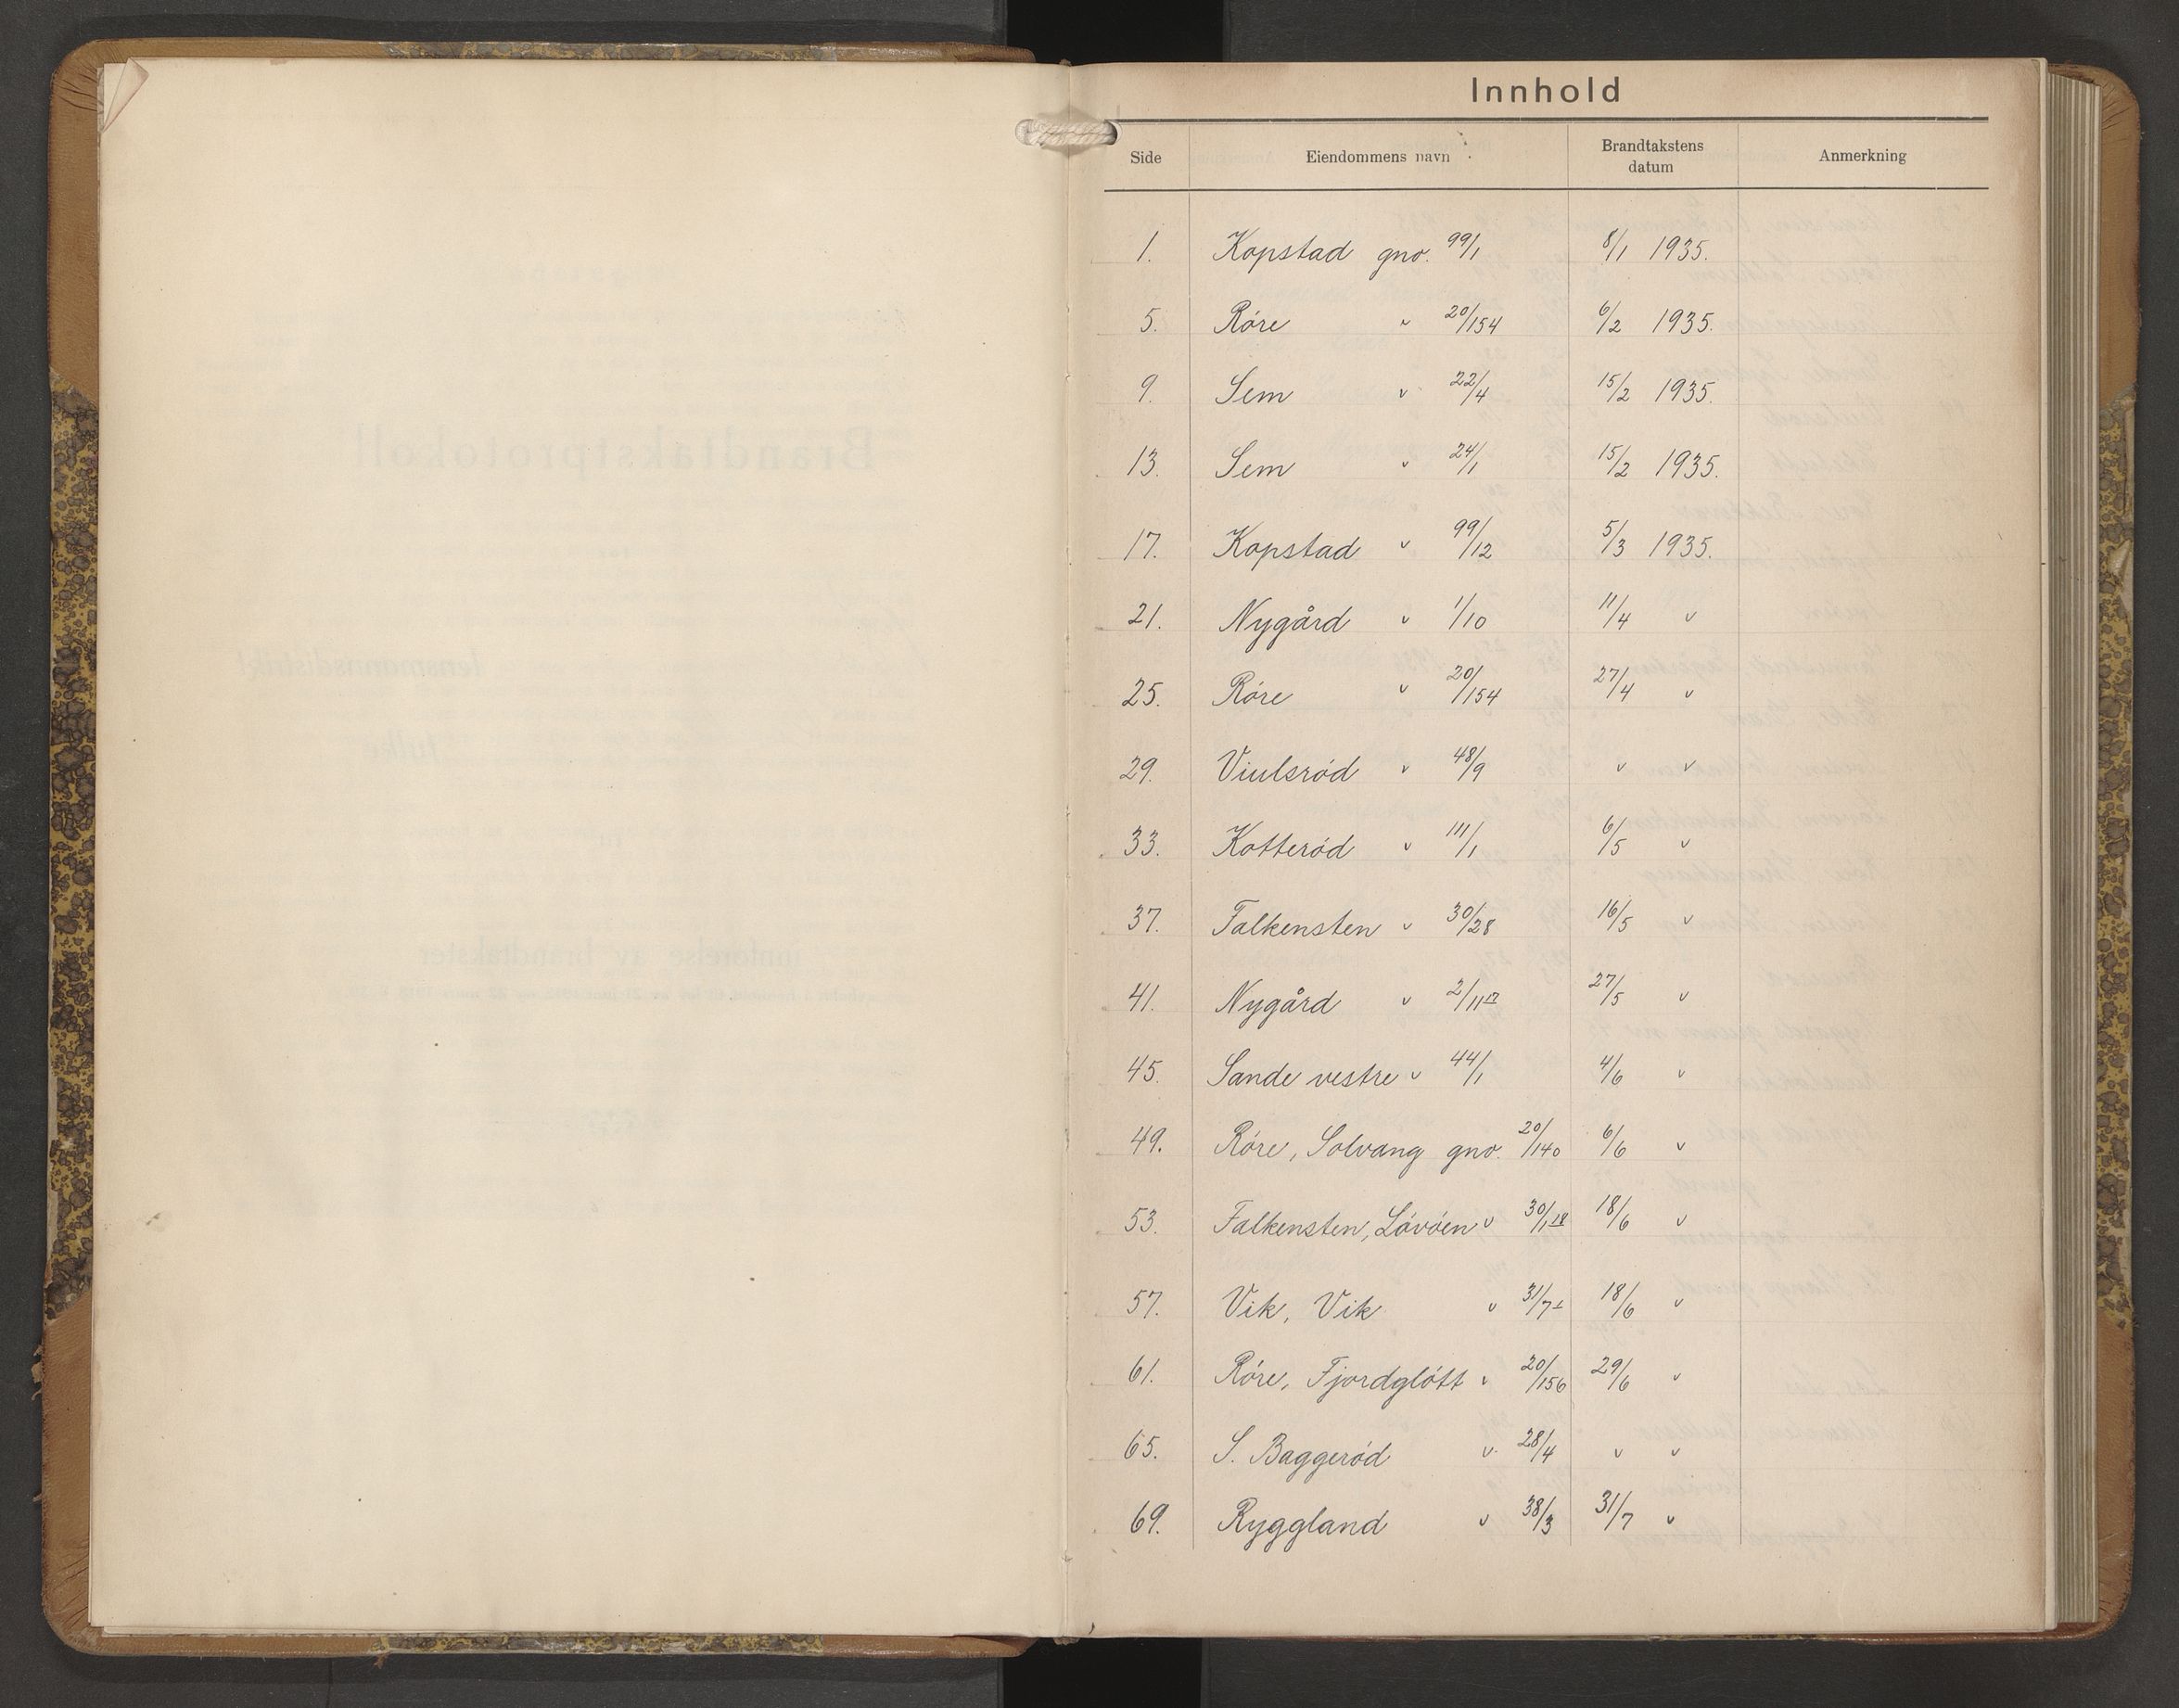 Innhold
Side Eiendommens navn Brandtakstens datum Anmerkning
1. Kopstad gno. 99/1 8/1 1935.
5. Röre " 20/154 6/2 1935.
9. Sem " 22/4 15/2 1935.
13. Sem " 24/1 15/2 1935.
17. Kopstad " 99/12 5/3 1935.
21. Nygård " 1/10 11/4 "
25. Röre " 20/154 27/4 "
29. Viulsröd " 48/9 " "
33. Kotteröd " 111/1 6/5 "
37. Falkensten " 30/28 16/5 "
41. Nygård " 2/11 27/5 "
45. Sande vestre " 44/1 4/6 "
49. Röre, Solvang gno. 20/140 6/6 "
53. Falkensten, Lövöen " 30/1 18/6 "
57. Vik, Vik " 31/7 18/6 "
61. Röre, Fjordglött " 20/156 29/6 "
65. S. Baggeröd " 28/4 " "
69. Ryggland " 38/3 31/7 "